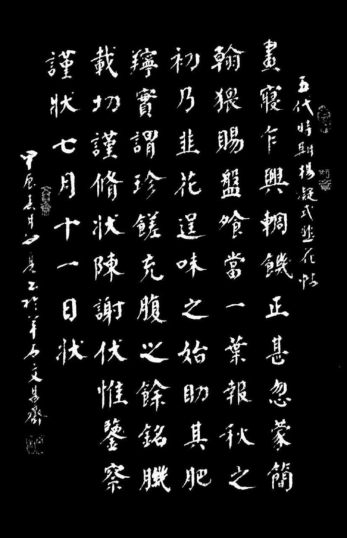 五代時期楊凝式韭花帖
晝寢乍興輖饑正甚忽蒙簡
翰猥賜盤飧當一葉報秋之
初乃韭花逞味之始助其肥
實謂珍饈充腹之餘銘
載切謹脩狀陳謝伏惟鑒察
謹狀七月十一日狀
甲辰